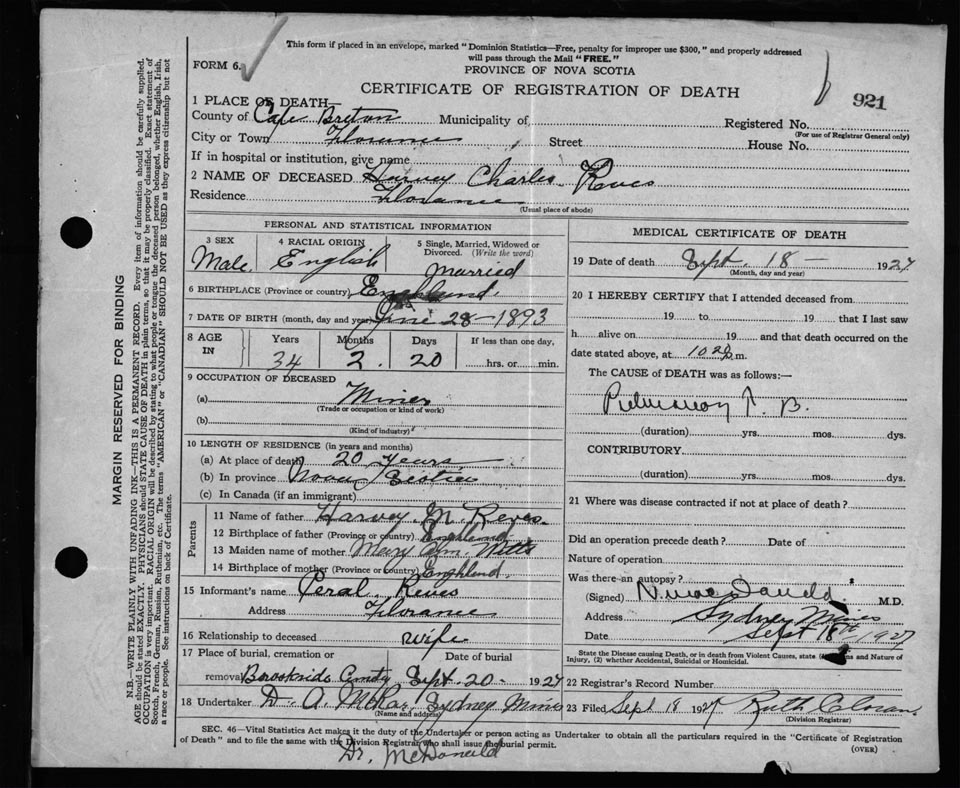 This form if placed in an envelope, marked "Dominion Statistics—Free, penalty for improper use $300," and properly addressed
will pass through the Mail "FREE."
FORM 6.
PROVINCE OF NOVA SCOTIA
CERTIFICATE OF REGISTRATION OF DEATH
921
1 PLACE OF DEATH—
County of Cape Breton Municipality of Registered No.
(For use of Registrar General only)
City or Town Street House No.
If in hospital or institution, give name
2 NAME OF DECEASED Harvey Charles Reves
Residence Florance
(Usual place of abode)
PERSONAL AND STATISTICAL INFORMATION
3 SEX 4 RACIAL ORIGIN 5 Single, Married, Widowed or
Divorced. (Write the word)
Male English Married
6 BIRTHPLACE (Province or country) Enghland.
7 DATE OF BIRTH (month, day and year) June 28—1893
8 AGE IN Years Months Days If less than one day,
34 2. 20 hrs. or min.
9 OCCUPATION OF DECEASED
(a) Miner
(Trade or occupation or kind of work)
(b)
(Kind of industry)
10 LENGTH OF RESIDENCE (in years and months)
(a) At place of death 20 years
(b) In province Nova Scotia
(c) In Canada (if an immigrant)
Parents
11 Name of father Harvey M. Reves.
12 Birthplace of father (Province or country) Enghland
13 Maiden name of mother Mary Ann Witts
14 Birthplace of mother (Province or country) Enghland.
15 Informant's name Peral Reves
Address Florance
16 Relationship to deceased wife
17 Place of burial, cremation or Date of burial
removal Sept. 20- 1927
18 Undertaker D. A. Sydney Mines
(Name and address)
MEDICAL CERTIFICATE OF DEATH
19 Date of death Sept. 18— 1927
(Month, day and year)
20 I HEREBY CERTIFY that I attended deceased from
19 to 19 that I last saw
h alive on 19 and that death occurred on the
date stated above, at m.
The CAUSE of DEATH was as follows:—
Pulmonary T. B.
(duration) yrs. mos. dys.
CONTRIBUTORY
(duration) yrs. mos. dys.
21 Where was disease contracted if not at place of death?
Did an operation precede death? Date of
Nature of operation
Was there an autopsy?
(Signed) M.D.
Address Sydney Mines
Date Sept 18th 1927
State the Disease causing Death, or in death from Violent Causes, state (1) Means and Nature of
Injury, (2) whether Accidental, Suicidal or Homicidal.
22 Registrar's Record Number
23 Filed Sept 18 1927 Ruth
(Division Registrar)
SEC. 46—Vital Statistics Act makes it the duty of the Undertaker or person acting as Undertaker to obtain all the particulars required in the "Certificate of Registration
of Death" and to file the same with the Division Registrar who shall issue the burial permit. (OVER)
Dr. McDonald
MARGIN RESERVED FOR BINDING
N.B.—WRITE PLAINLY WITH UNFADING INK—THIS IS A PERMANENT RECORD. Every item of information should be carefully supplied.
AGE should be stated EXACTLY. PHYSICIANS should STATE CAUSE OF DEATH in plain terms, so that it may be properly classified. Exact statement of
OCCUPATION is very important. RACIAL ORIGIN will be described by stating to what people or tongue the deceased person belonged, whether English, Irish,
Scotch, French, German, Russian, Ruthenian, etc. The terms "AMERICAN" or "CANADIAN" SHOULD NOT BE USED as they express citizenship but not
a race or people. See instructions on back of Certificate.